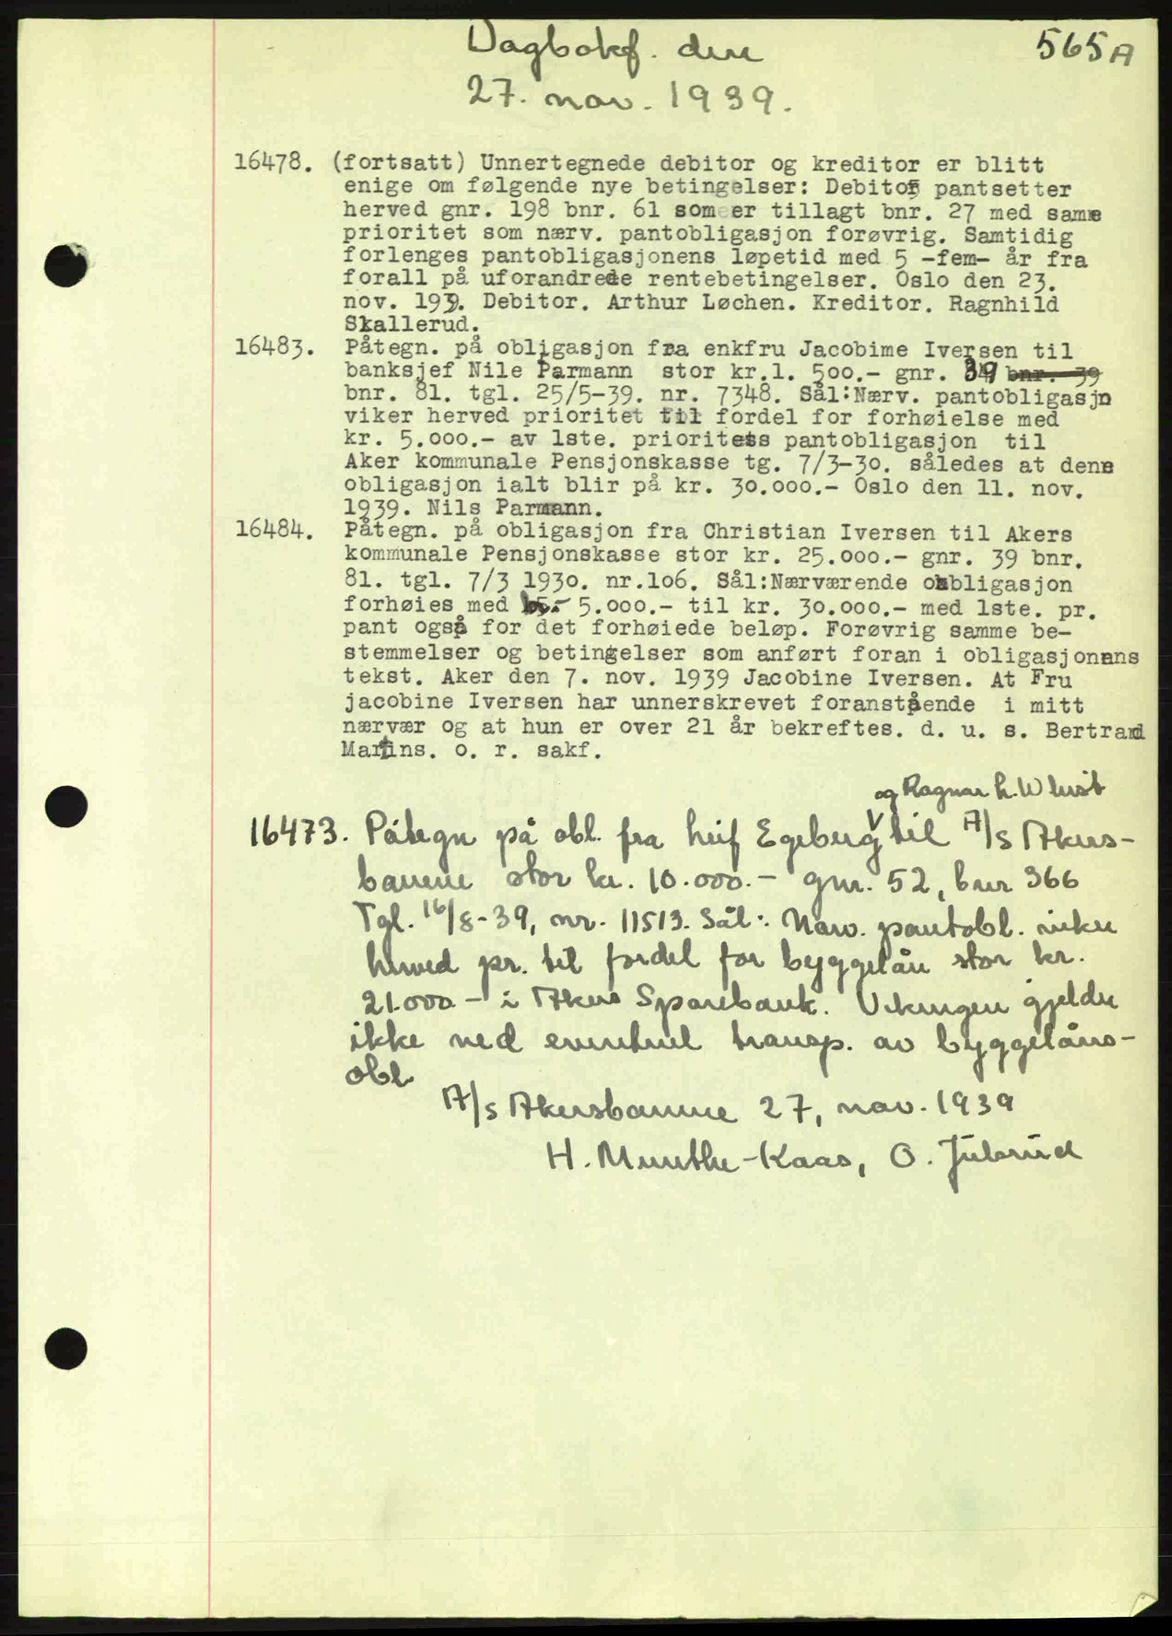 Dagbokf. den
27. nov. 1939.
565A
16478. (fortsatt) Unnertegnede debitor og kreditor er blitt
enige om følgende nye betingelser: Debitor pantsetter
herved gnr. 198 bnr. 61 som er tillagt bnr. 27 med samme
prioritet som nærv. pantobligasjon forøvrig. Samtidig
forlenges pantobligasjonens løpetid med 5 -fem- år fra
forall på uforandrede rentebetingelser. Oslo den 23.
nov. 1939. Debitor. Arthur Løchen. Kreditor. Ragnhild
Skallerud.
16483. Påtegn. på obligasjon fra enkfru Jacobime Iversen til
banksjef Nile Parmann stor kr.1. 500.- gnr. 39 bnr. 39
bnr. 81. tgl. 25/5-39. nr. 7348. Sål:Nærv. pantobligasjn
viker herved prioritet til fordel for forhøielse med
kr. 5.000.- av 1ste. prioritets pantobligasjon til
Aker kommunale Pensjonskasse tg. 7/3-30. således at denne
obligasjon ialt blir på kr. 30.000.- Oslo den 11. nov.
1939. Nils Parmann.
16484. Påtegn. på obligasjon fra Christian Iversen til Akers
kommunale Pensjonskasse stor kr. 25.000.- gnr. 39 bnr.
81. tgl. 7/3 1930. nr.106. Sål:Nærværende obligasjon
forhøies med 5.000.- til kr. 30.000.- med 1ste. pr.
pant også for det forhøiede beløp. Forøvrig samme be-
stemmelser og betingelser som anført foran i obligasjonens
tekst. Aker den 7. nov. 1939 Jacobine Iversen. At Fru
jacobine Iversen har unnerskrevet foranstående i mitt
nærvær og at hun er over 21 år bekreftes. d. u. s. Bertrand
Martins. o. r. sakf.
og Ragnar h. W
16473. Påtegn på obl. fra Leif Egeberg til A/s Akers-
banene stor kr. 10.000.- gnr. 52, bnr 366
Tgl. 16/8-39, nr. 11513. Sål: Nærv. pantobl. viker
herved pr. til fordel for byggelån stor kr.
21.000 - i Akers Sparebank. Vikingen gjelder
ikke ved eventuel transp. av byggelåns-
obl.
A/s Akersbanene 27, nov. 1939
H. Munthe-Kaas, O. Julsrud